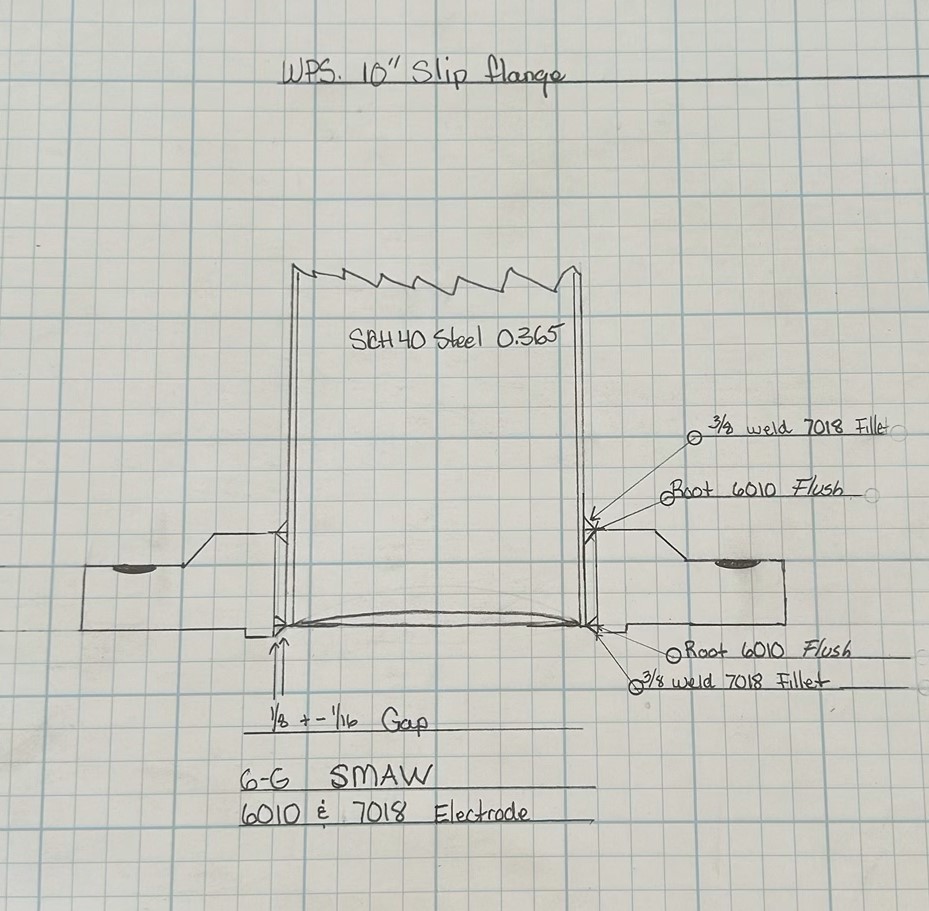 WPS. 10" Slip flange
SCH 40 Steel 0.365
3/8 weld 7018 Fillet
Root 6010 Flush
Root 6010 Flush
3/8 weld 7018 Fillet
1/8 +- 1/16 Gap
6-G SMAW
6010 & 7018 Electrode